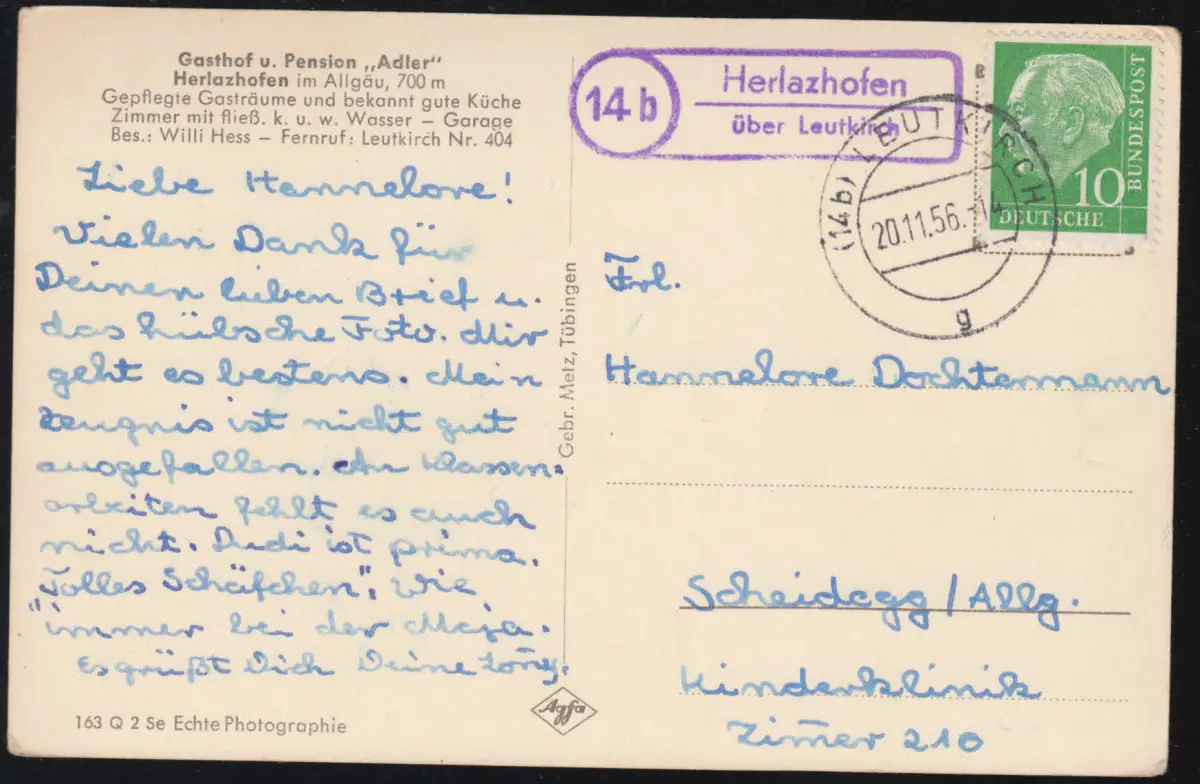 Gasthof u. Pension „Adler"
Herlazhofen im Allgäu, 700 m
Gepflegte Gasträume und bekannt gute Küche
Zimmer mit fließ. k. u. w. Wasser – Garage
Bes.: Willi Hess – Fernruf: Leutkirch Nr. 404
Liebe Hannelore!
Vielen Dank für
Deinen lieben Brief u.
das hübsche Foto. Mir
geht es bestens. Mein
Zeugnis ist nicht gut
ausgefallen. An Klassen-
arbeiten fehlt es auch
nicht. Dudi ist prima.
"Tolles Schäfchen", wie
immer bei der
Es grüßt Dich Deine
163 Q 2 Se Echte Photographie
Gebr. Metz, Tübingen
Agfa
14 b
Herlazhofen
über Leutkirch
(14b) LEUTKIRCH
20.11.56.-14
g
10
DEUTSCHE
BUNDESPOST
Frl.
Hannelore Dochtermann
Scheidegg / Allg.
Kinderklinik
Zim̄er 210